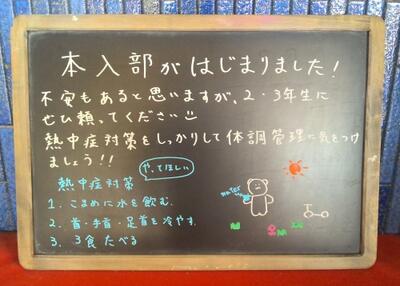 本入部がはじまりました！
不安もあると思いますが、2・3年生に
ぜひ頼ってください
熱中症対策をしっかりして体調管理に気をつけ
ましょう！！
やってほしい
熱中症対策
1. こまめに水を飲む
2. 首・手首・足首を冷やす
3. 3食たべる
water